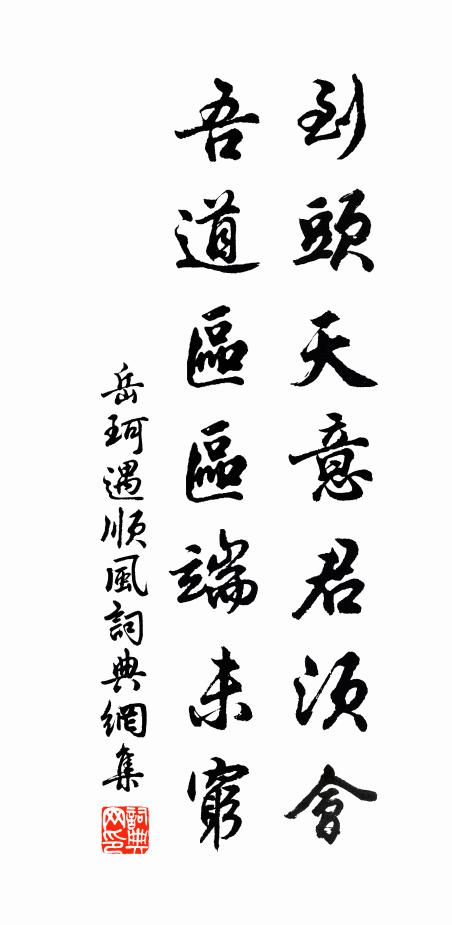 到頭天意君須會
吾道區區端未窮
岳珂遇順風詞典網集
詞典網印